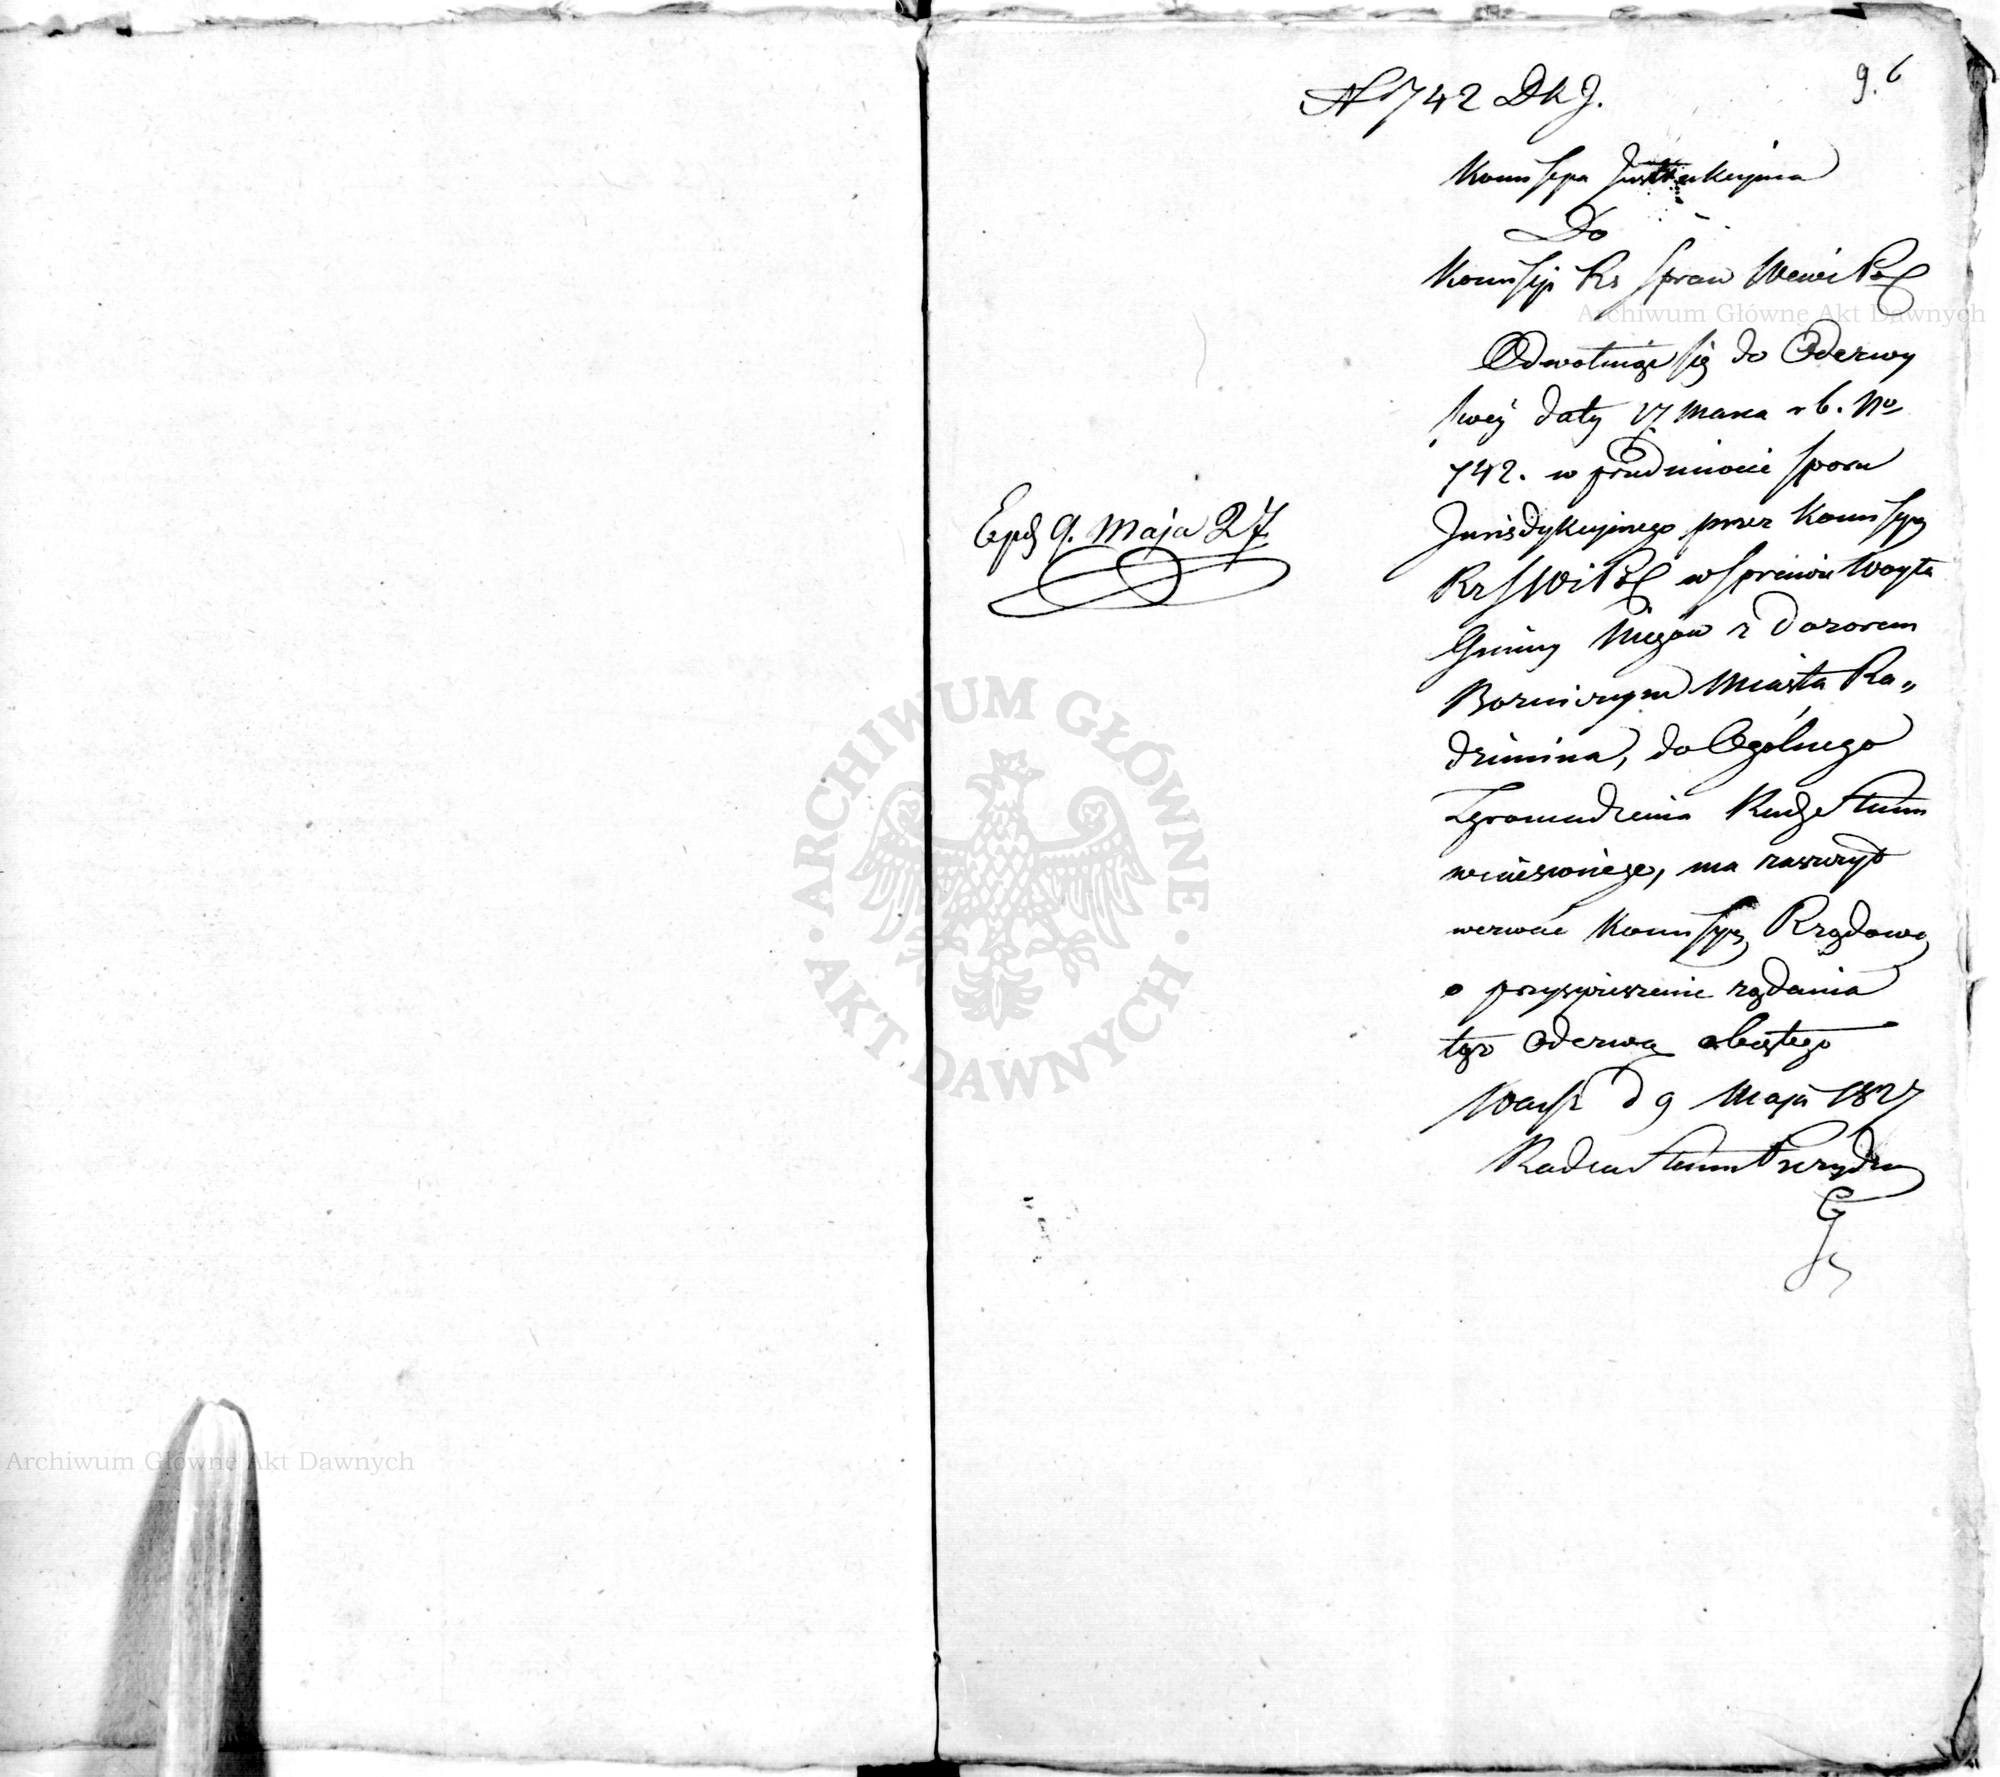 N 742 D K J.
9. 6
Kommissya Instrukcyina
Do
Kommissyi Rz Spraw Wewn i Pol
Archiwum Główne Akt Dawnych
Odwołuiąc się do Odezwy
swey daty 17 marca r b. No
742. w przedmiocie sporu
Jurisdykcyinego przez Kommissyą
RzSWiPol w sprawie Woyta
Gminy Niegów z Dozorem
Bożniczym Miasta Ra„
dzimina, do Ogólnego
Zgromadzenia Rady Stanu
wniesionego, ma zaszczyt
wezwać Kommissyą Rządową
o przyspieszenie żądania
tąż Odezwą obiętego
Warsz d 9 Maja 1827
Radca Stanu Prezyduią
Exped 9. Maja 27
ARCHIWUM GŁÓWNE
· AKT DAWNYCH ·
Archiwum Główne Akt Dawnych